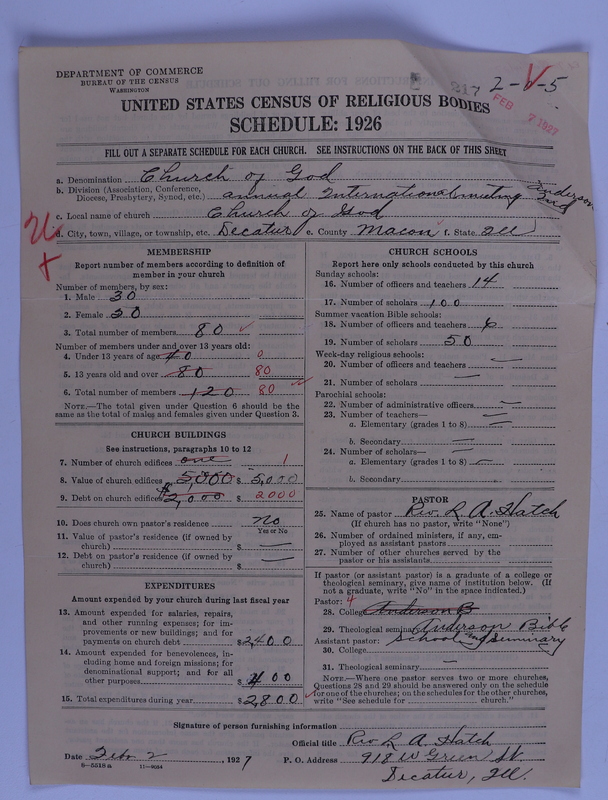 DEPARTMENT OF COMMERCE
BUREAU OF THE CENSUS
WASHINGTON
217 2-√-5
FEB 7 1927
UNITED STATES CENSUS OF RELIGIOUS BODIES
SCHEDULE: 1926
FILL OUT A SEPARATE SCHEDULE FOR EACH CHURCH. SEE INSTRUCTIONS ON THE BACK OF THIS SHEET
a. Denomination Church of God
b. Division (Association, Conference, Diocese, Presbytery, Synod, etc.) annual International meeting Anderson Ind
c. Local name of church Church of God
d. City, town, village, or township, etc. Decatur e. County Macon f. State Ill
MEMBERSHIP
Report number of members according to definition of
member in your church
Number of members, by sex:
1. Male 30
2. Female 50
3. Total number of members 80 ✓
Number of members under and over 13 years old:
4. Under 13 years of age 40 0
5. 13 years old and over 80 80
6. Total number of members 120 80 ✓
NOTE.—The total given under Question 6 should be the
same as the total of males and females given under Question 3.
CHURCH BUILDINGS
See instructions, paragraphs 10 to 12
7. Number of church edifices one 1
8. Value of church edifices 5,000 $ 5,000
9. Debt on church edifices $2,000 2000
10. Does church own pastor's residence no
Yes or No
11. Value of pastor's residence (if owned by
church) $ —
12. Debt on pastor's residence (if owned by
church) $ —
EXPENDITURES
Amount expended by your church during last fiscal year
13. Amount expended for salaries, repairs,
and other running expenses; for im-
provements or new buildings; and for
payments on church debt $2,400
14. Amount expended for benevolences, in-
cluding home and foreign missions; for
denominational support; and for all
other purposes $400
15. Total expenditures during year $2,800 ✓
CHURCH SCHOOLS
Report here only schools conducted by this church
Sunday schools:
16. Number of officers and teachers 14
17. Number of scholars 100
Summer vacation Bible schools:
18. Number of officers and teachers 6
19. Number of scholars 50
Week-day religious schools:
20. Number of officers and teachers —
21. Number of scholars —
Parochial schools:
22. Number of administrative officers —
23. Number of teachers—
a. Elementary (grades 1 to 8) —
b. Secondary —
24. Number of scholars—
a. Elementary (grades 1 to 8) —
b. Secondary —
PASTOR
25. Name of pastor Rev. L. A. Hatch
(If church has no pastor, write "None")
26. Number of ordained ministers, if any, em-
ployed as assistant pastors
27. Number of other churches served by the
pastor or his assistants
If pastor (or assistant pastor) is a graduate of a college or
theological seminary, give name of institution below. (If
not a graduate, write "No" in the space indicated.)
Pastor:
28. College Anderson B
29. Theological seminary Anderson Bible
Assistant pastor: School and Seminary
30. College
31. Theological seminary —
NOTE.—Where one pastor serves two or more churches,
Questions 28 and 29 should be answered only on the schedule
for one of the churches; on the schedules for the other churches,
write "See schedule for church."
Signature of person furnishing information
Official title Rev L A Hatch
Date Feb 2 1927 P. O. Address 918 W Green St.
8—5518 a 11—9054 Decatur, Ill.